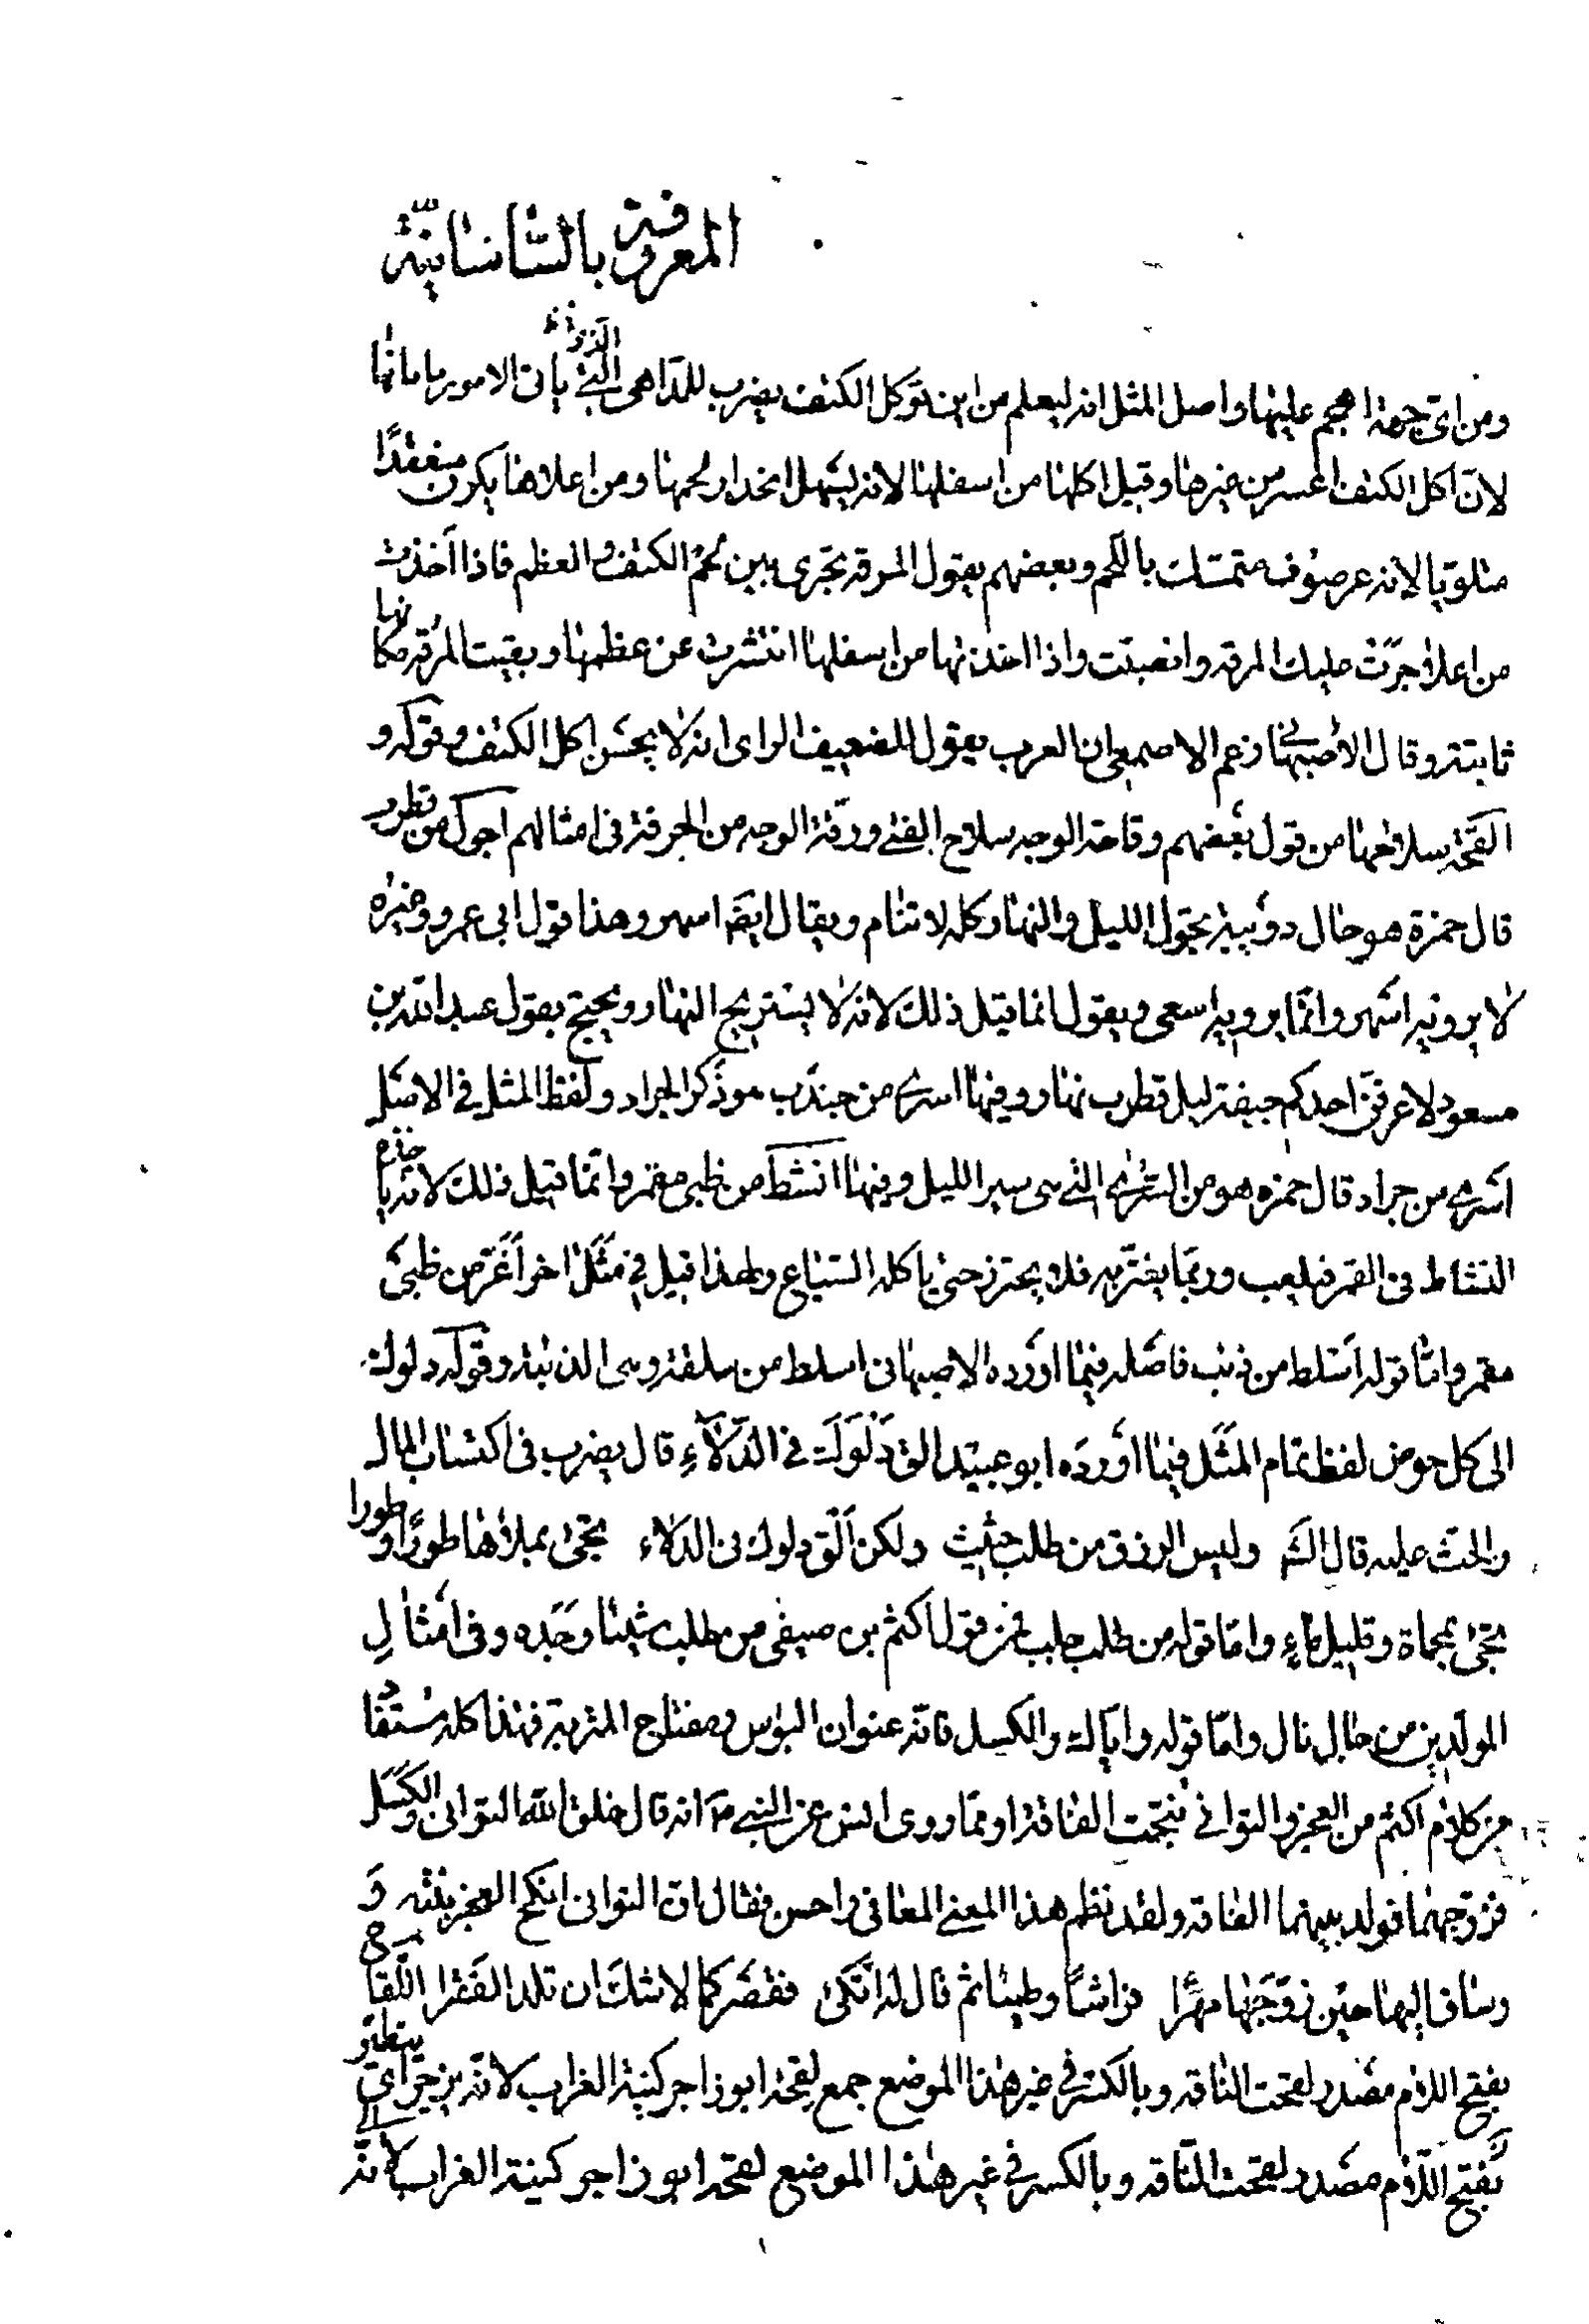 المعروفة بالساسانية
ومن اى جهة اهجم عليها واصل المثل انه ليعلم من اين توكل الكتف يضرب للداهى الذى ياتى الامور من ماتاها
لان اكل الكتف اعسر من غيرها وقيل اكلها من اسفلها لانه يسهل انحدار لحمها ومن اعلاها يكون متعقدا
ملتويا لانه غرضوف متمسك باللحم وبعضهم يقول المرقة تجرى بين لحم الكتف والعظم فاذا اخذت
من اعلا جرت عليك المرقة وانصبت واذا اخذتها من اسفلها انتشرت عن عظمها وبقيت المرقة مكانها
ثابتة وقال الاصبهانى زعم الاصمعى ان العرب يقول للضعيف الراى انه لا يحسن اكل الكتف وقوله و
القحة سلاحها من قول بعضهم وقاحة الوجه سلاح الفتى ورقة الوجه من الحرفة فى امثالهم اجول من قطرب
قال حمزة هو حال دويبة تجول الليل والنهار كله لا تنام ويقال ايضا اسهر وهذا قول ابى عمرو وغيره
لا يرويه اسهر وانما يرويه اسعى ويقول انما قيل ذلك لانه لا يستريح النهار ويحتج بقول عبدالله بن
مسعود لا اعرفن احدكم جيفة ليل قطرب نهار وفيها اسرى من جندب هو ذكر الجراد ولفظ المثل فى الاصل
اسرى من جراد قال حمزه هو من السرى التى هى سير الليل وفيها انشط من ظبى مقمر وانما قيل ذلك لانه ياخذه
النشاط فى القمر فيلعب وربما يغتر به فلا يحترز حتى ياكله السباع ولهذا قيل فى مثل اخر اغر من ظبى
مقمر واما قوله اسلط من ذئب فاصله فيما اورده الاصبهانى اسلط من سلقة وهى الذئبة وقوله دلوك
الى كل حوض لفظ تمام المثل فيما اورده ابو عبيد الق دلوك فى الدلاء قال يضرب فى اكتساب المال
والحث عليه قال الش وليس الرزق من طلب حثيث ولكن الق دلوك فى الدلاء تجئ بملأها طورا وطورا
تجئ بحماة وقليل ماء واما قوله من طلب جلب فمن قول اكثم بن صيفى من طلب شيئا وجده وفى امثال
المولدين من جال نال واما قوله واياك والكسل فانه عنوان البؤس ومفتاح المتربة فهذا كله مستفاد
من كلام اكثم من العجز والتوانى نتجت الفاقة او مما روى انس عن النبى انه قال خلق الله التوانى والكسل
فزوجهما فولد بينهما الفاقه ولقد نظم هذا المعنى المعانى واحسن فقال ان التوانى انكح العجز بنته و
وساق اليها حين زوجها مهرا فراشا وطيئا ثم قال له اتكئ فقصركما لا شك ان تلد الفقرا اللقاح
بفتح اللام مصدر لقحت الناقه وبالكسر فى غير هذا الموضع جمع لقحة ابو زاجر كنية الغراب لانه يزجر اى يتطير
بفتح اللام مصدر لقحت الناقه وبالكسر فى غير هذا الموضع لقحه ابو زاجر كنية الغراب لانه